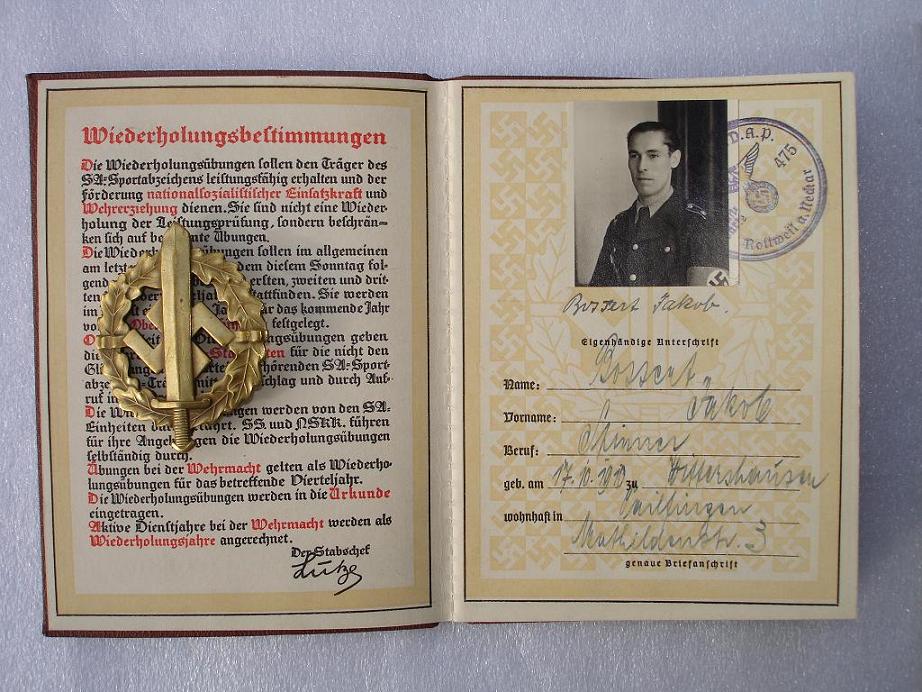 Wiederholungsbestimmungen
Die Wiederholungsübungen sollen den Träger des
SA-Sportabzeichens leistungsfähig erhalten und der
Förderung nationalsozialistischer Einsatzkraft und
Wehrerziehung dienen. Sie sind nicht eine Wieder-
holung der Leistungsprüfung, sondern beschrän-
ken sich auf Übungen.
Die sollen im allgemeinen
am dem diesem Sonntag fol-
ersten, zweiten und drit-
stattfinden. Sie werden
das kommende Jahr
festgelegt.
geben
die für die nicht den
SA-Sport-
und durch Auf-
ruf
Die werden von den SA-
Einheiten SS und NSKK. führen
für ihre die Wiederholungsübungen
selbständig durch.
Übungen bei der Wehrmacht gelten als Wiederho-
lungsübungen für das betreffende Vierteljahr.
Die Wiederholungsübungen werden in die Urkunde
eingetragen.
Aktive Dienstjahre bei der Wehrmacht werden als
Wiederholungsjahre angerechnet.
Der Stabschef
Lutze
D.A.P.
475
Rottweil a. Neckar
Bossert Jakob.
Eigenhändige Unterschrift
Name: Bossert
Vorname: Jakob
Beruf:
geb. am 17. zu
wohnhaft in
Mathildenstr. 3
genaue Briefanschrift